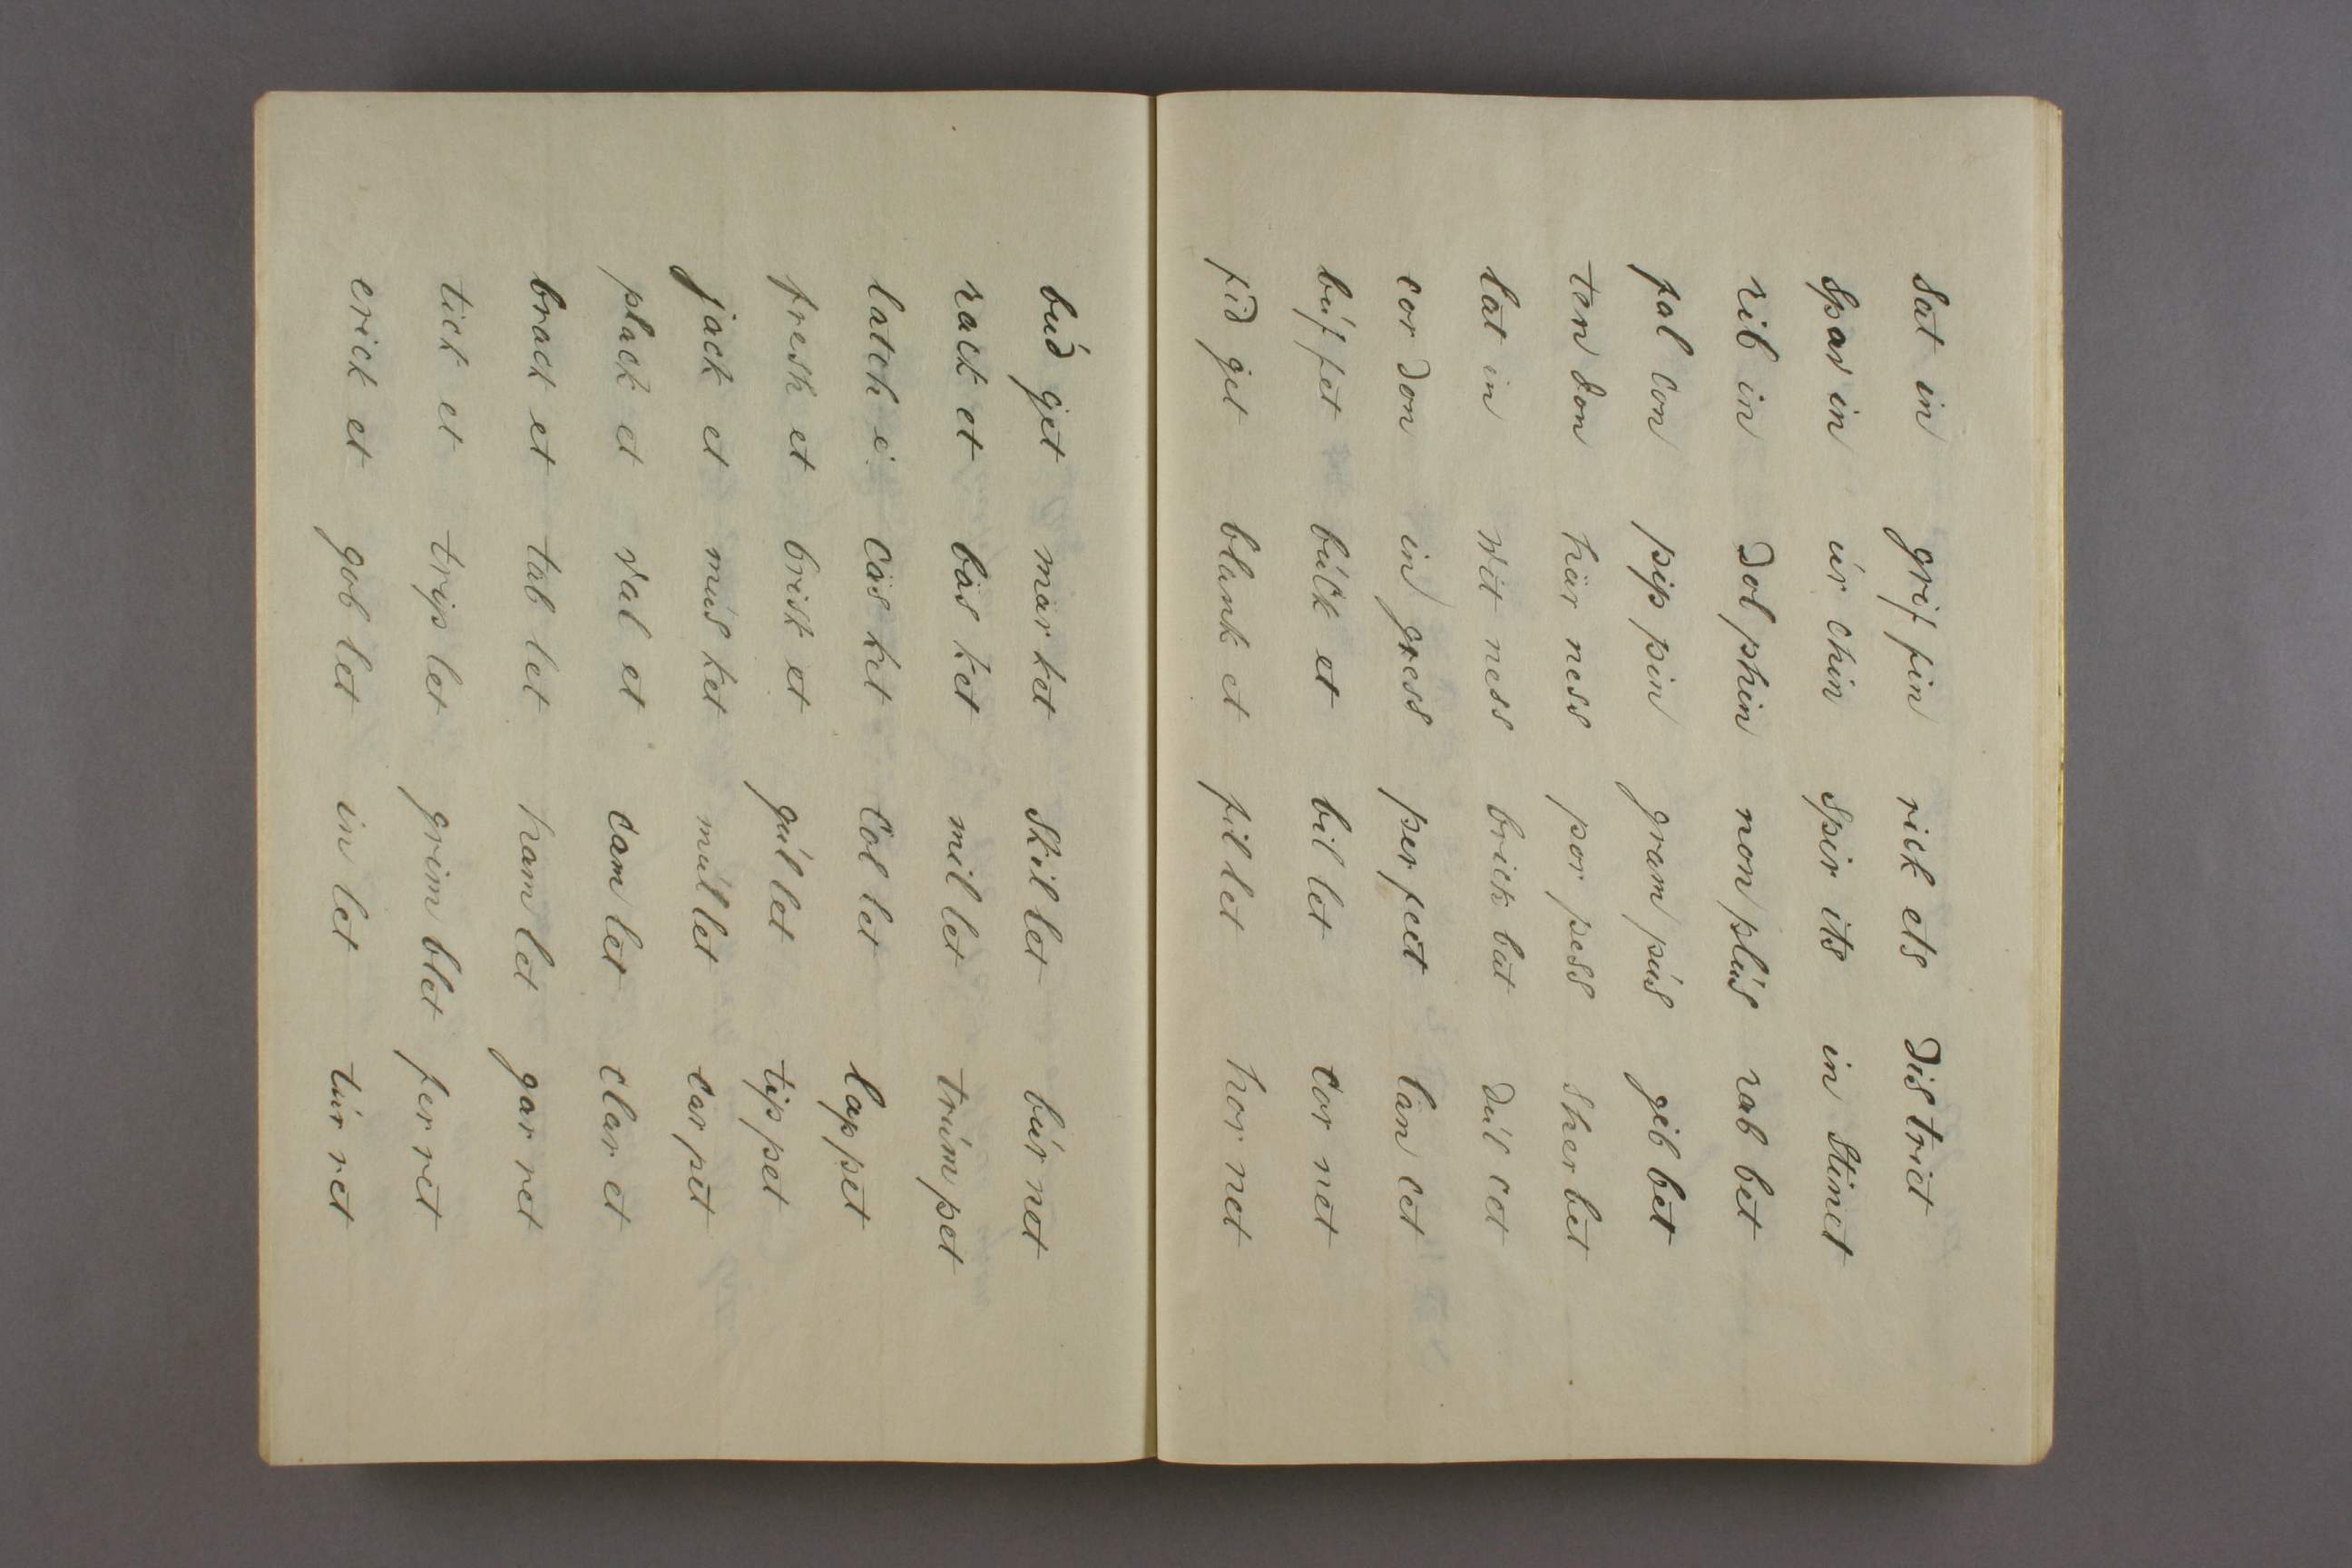 Sat in grif fin rick ets Dis trict
Spav in úr chin Spir its in Stinct
rib in Dol phin non plús rab bet
fal con pip pin gram pús gib bet
ten don här ness por pess sher bet
lat in wit ness brick bat Dúl cet
cor don in gress per fect lan cet
búf fet búck et bil let cor net
fid get blank et fil let hor net
búd get mar ket Skil let búr net
rack et bäs ket mil let trúm pet
latch e cäs ket col let lap pet
fresh et brisk et gúl let tip pet
jack et mús ket múl let car pet
plack et val et cam let clar et
brack et tab let ham let gar ret
tick et trip let grim blet fer ret
crick et gob let in let túr ret